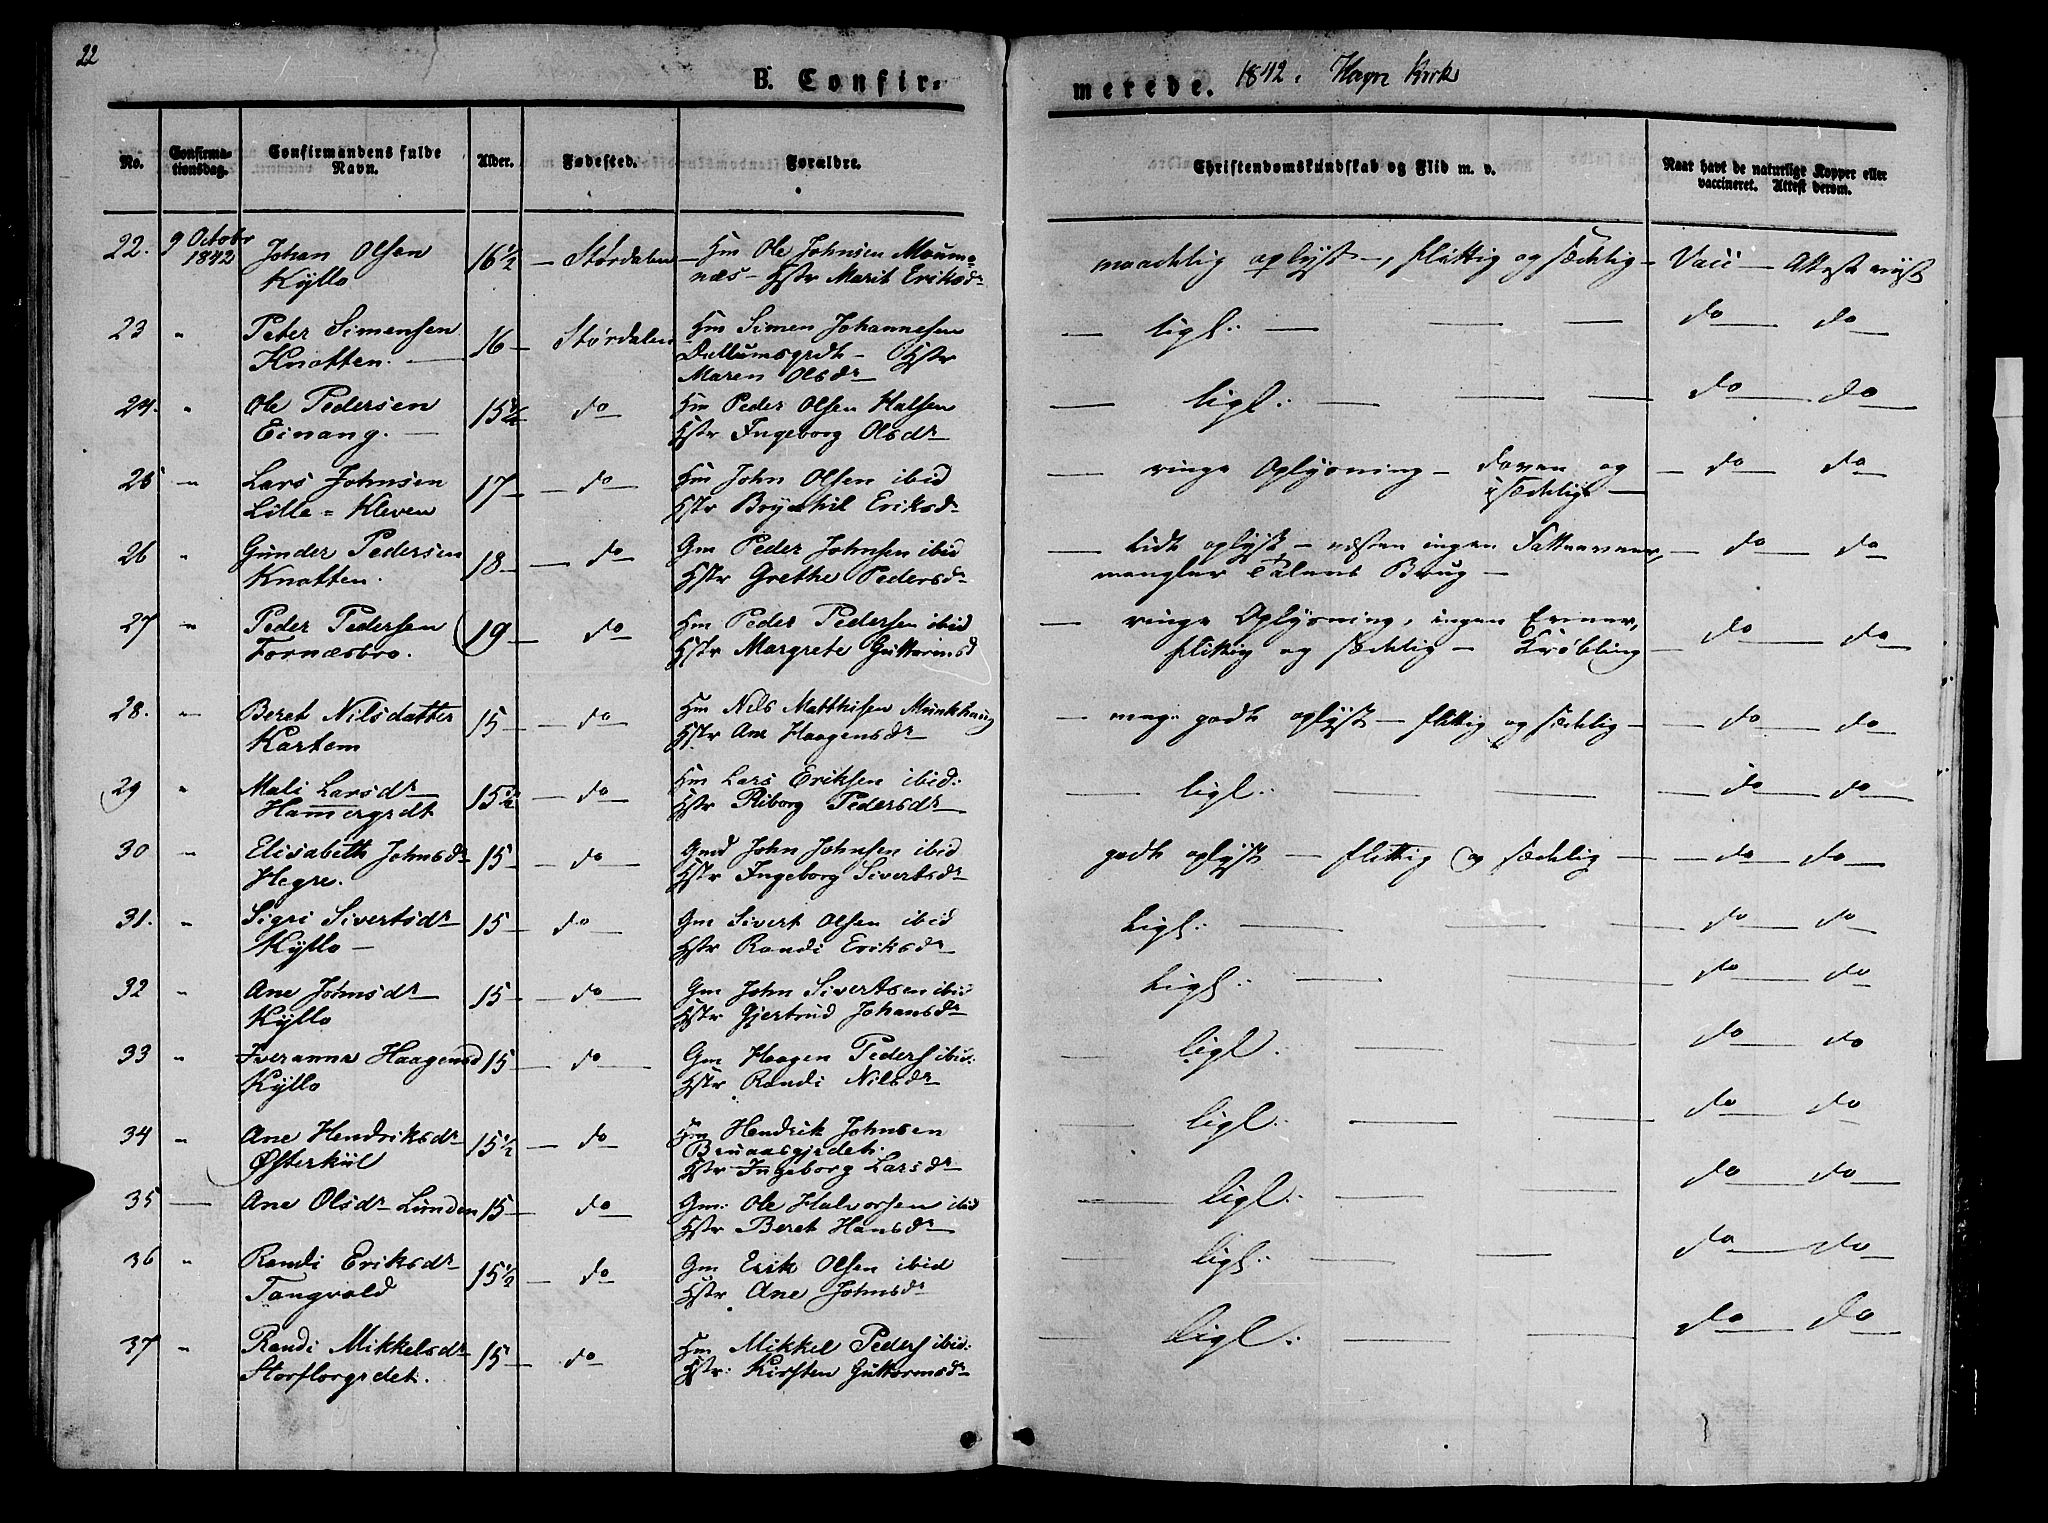 22
B. Confir-
merede. 1842. Hegre Kirk
No.
Confirma-
tionsdag.
Confirmandens fulde
Navn.
Alder.
Fødested.
Forældre.
Christendomskundskab og Flid m. v.
Naar havt de naturlige Kopper eller
vaccineret. Attest derom.
22. 9 Octobr Johan Olsen 16½ — Størdalen — Hm Ole Johnsen Moum- maadelig oplyst —, flittig og sædelig — Vacc — Attest
1842 Kyllo næs — Hstr Marit Eriksdr
23 " Peter Simensen 16 — Størdalen Hm Simen Johannesen — ligl: — — — do — do —
Knotten. — Dullumsgrdt — Hstr
Maren Olsdr
24. " Ole Pedersen 15½ do Hm Peder Olsen Halsen — ligl: — — — do — do —
Einang. — Hstr Ingeborg Olsdr
25 " Lars Johnsen 17 — do Hm John Olsen ibid — ringe Oplysning — doven og — do — do —
Lille=Kleven Hstr Eriksdr usædelig —
26 " Gunder Pedersen 18 — do Gm Peder Johnsen ibid — lidt oplyst — næsten ingen — do — do —
Knotten. Hstr Grethe Pedersdr mangler Talens Brug —
27 " Peder Pedersen 19 — do Hm Peder Pedersen ibid — ringe Oplysning, ingen — do — do —
Fornæsbro. Hstr Margrete Guttormsd flittig og sædelig — Krøbling
28. " Beret Nilsdatter 15 — do Hm Nils Matthisen Munkhaug — meg: godt oplyst — flittig og sædelig — do — do —
Kartem Hstr Ane Haagensdr
29 " Mali Larsdr 15½ — do Hm Lars Eriksen ibid: — ligl: — — — do — do —
Hammergrdt Hstr Riborg Pedersdr
30 " Elisabeth Johnsdr 15 — do Gmd John Johnsen ibid godt oplyst — flittig og sædelig — — do — do —
Hegre. Hstr Ingeborg Sivertsdr
31. " Sigri Sivertsdr 15 — do Gm Sivert Olsen ibid ligl: — — — do — do —
Kyllo — Hstr Randi Eriksdr
32 " Ane Johnsdr 15 — do Gm John Sivertsen ibid ligl: — — — do — do
Kyllo Hstr Gjertrud Johansdr
33 " Iveranna Haagensd 15 — do Gm Haagen Peders ibid: — ligl. — — do — do
Kyllo Hstr Randi Nilsdr
34 " Ane Hendriksdr 15½ — do Hm Hendrik Johnsen ligl. — — do — do
Østerkiil Bruaasgjrdet.
Hstr Ingeborg Larsdr
35 — Ane Olsdr Lunden 15 — do Gm: Ole Halvorsen ibid — ligl. — — do — do
Hstr Beret Hansdr
36 " Randi Eriksdr 15½ — do Gm Erik Olsen ibid — ligl: — — do — do
Tangvold Hstr Ane Johnsdr
37 " Randi Mikkelsdr 15 — do Hm Mikkel Peders ibid: — ligl: — — do — do
Storflorgrdet. Hstr: Kirsten Guttormsdr